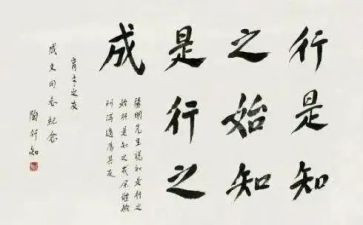 行是知
之始知
是行之
成
陽明先生說知是行之
始行是知之成
育才之友
成文同志紀念
陶行知